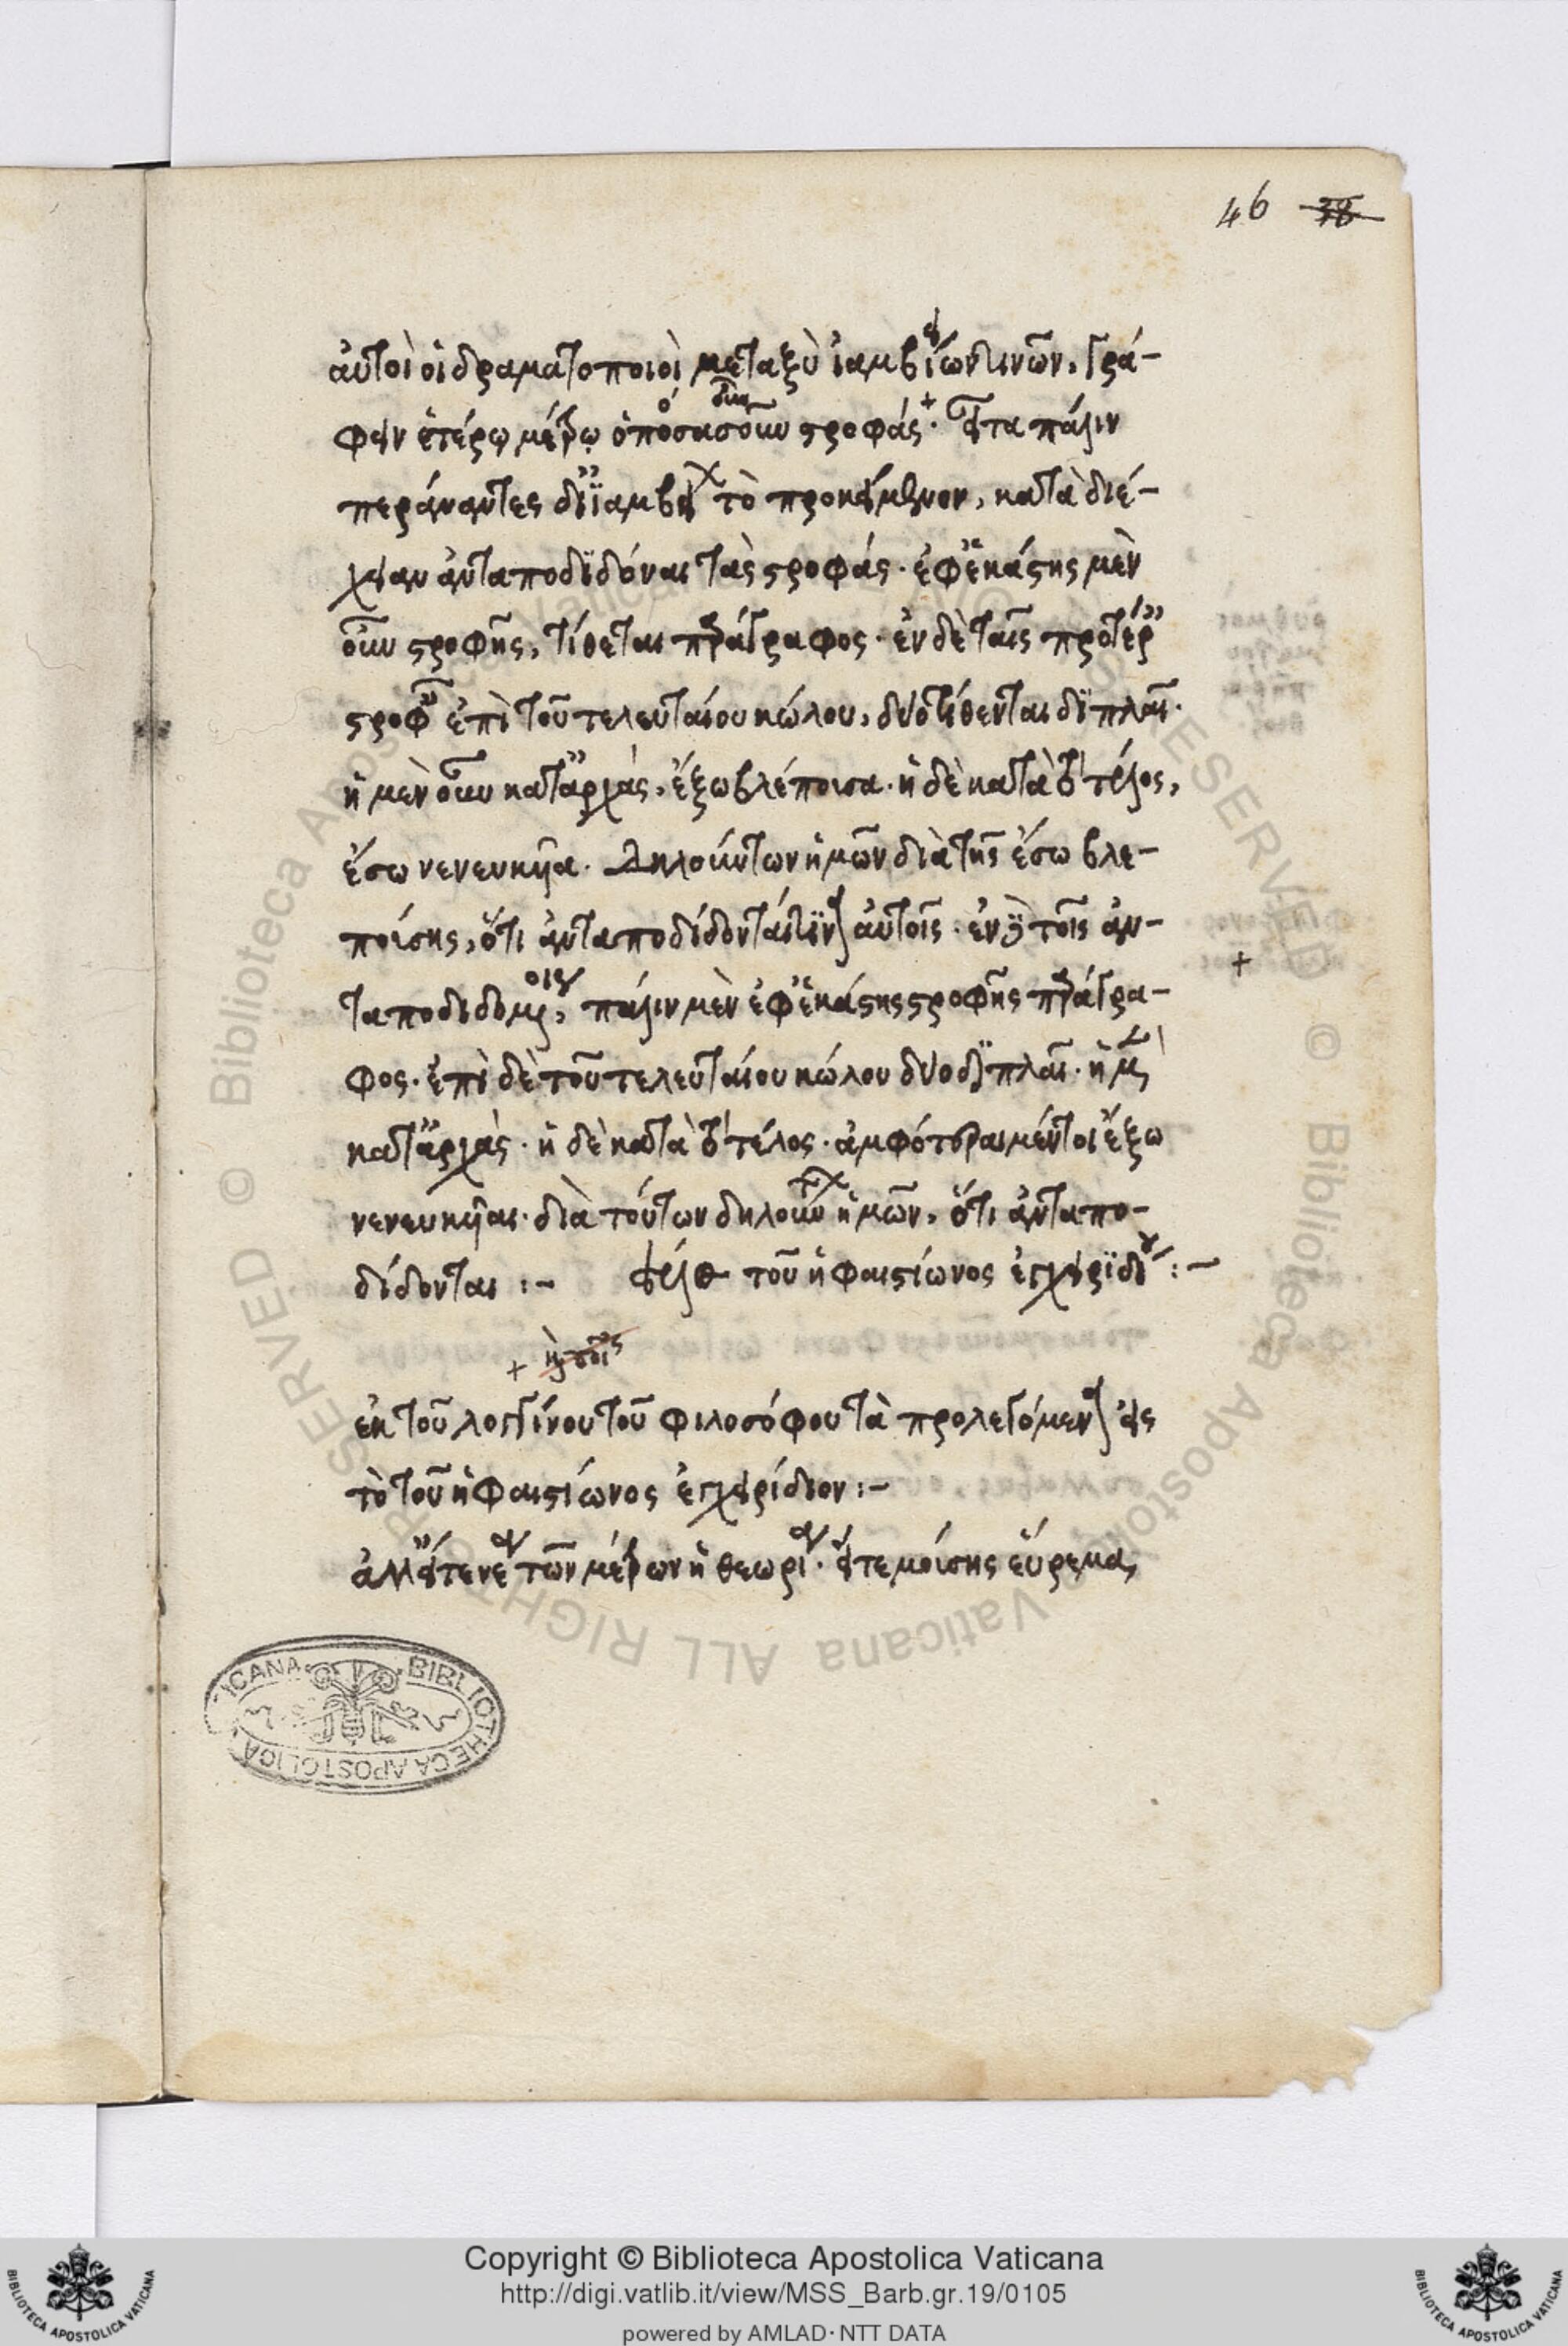 46 38
αὐτοὶ οἱ δραματοποιοὶ μεταξὺ ἰαμβίων τινῶν, γρά-
φειν ἑτέρῳ μέτρῳ ὁποσασοῦν στροφάς + εἶτα πάλιν
περάναντες δι' ἰαμβείχ τὸ προκείμενον, κατὰ διέ-
χειαν ἀνταποδιδόναι τὰς στροφάς. ἐφ' ἑκάστης μὲν
οὖν στροφῆς, τίθεται παράγραφος. ἐν δὲ ταῖς προτέρ
στροφ ἐπὶ τοῦ τελευταίου κώλου, δύο τίθενται διπλαῖ.
ἡ μὲν οὖν κατ' ἀρχὰς, ἔξω βλέπουσα. ἡ δὲ κατὰ τὸ τέλος,
ἔσω νενευκῆα. Δηλούντων ἡμῶν διὰ τῆς ἔσω βλε-
πούσης, ὅτι ἀνταποδίδονταί τινα αὐτοῖς. ἐν δὲ τοῖς ἀν-
ταποδιδομένοις, πάλιν μὲν ἐφ' ἑκάστης στροφῆς παράγρα-
φος. ἐπὶ δὲ τοῦ τελευταίου κώλου δύο διπλαῖ. ἡ μὲν
κατ' ἀρχάς. ἡ δὲ κατὰ τὸ τέλος. ἀμφότεραι μέντοι ἔξω
νενευκῆαι. διὰ τούτων δηλούντων ἡμῶν, ὅτι ἀνταπο-
δίδονται :- τέλος τοῦ ἡφαιστίωνος ἐγχειριδίου :-
+
ἐκ τοῦ λογγίνου τοῦ φιλοσόφου τὰ προλεγόμενα εἰς
τὸ τοῦ ἡφαιστίωνος ἐγχειρίδιον :-
ἀλλ' εἴτε νέα τῶν μέτρων ἡ θεωρία. εἴτε μούσης εὕρεμα
+
VATICANA BIBLIOTHECA APOSTOLICA
© Biblioteca Apostolica Vaticana ALL RIGHTS RESERVED
Copyright © Biblioteca Apostolica Vaticana
http://digi.vatlib.it/view/MSS_Barb.gr.19/0105
powered by AMLAD·NTT DATA
BIBLIOTECA APOSTOLICA VATICANA
BIBLIOTECA APOSTOLICA VATICANA